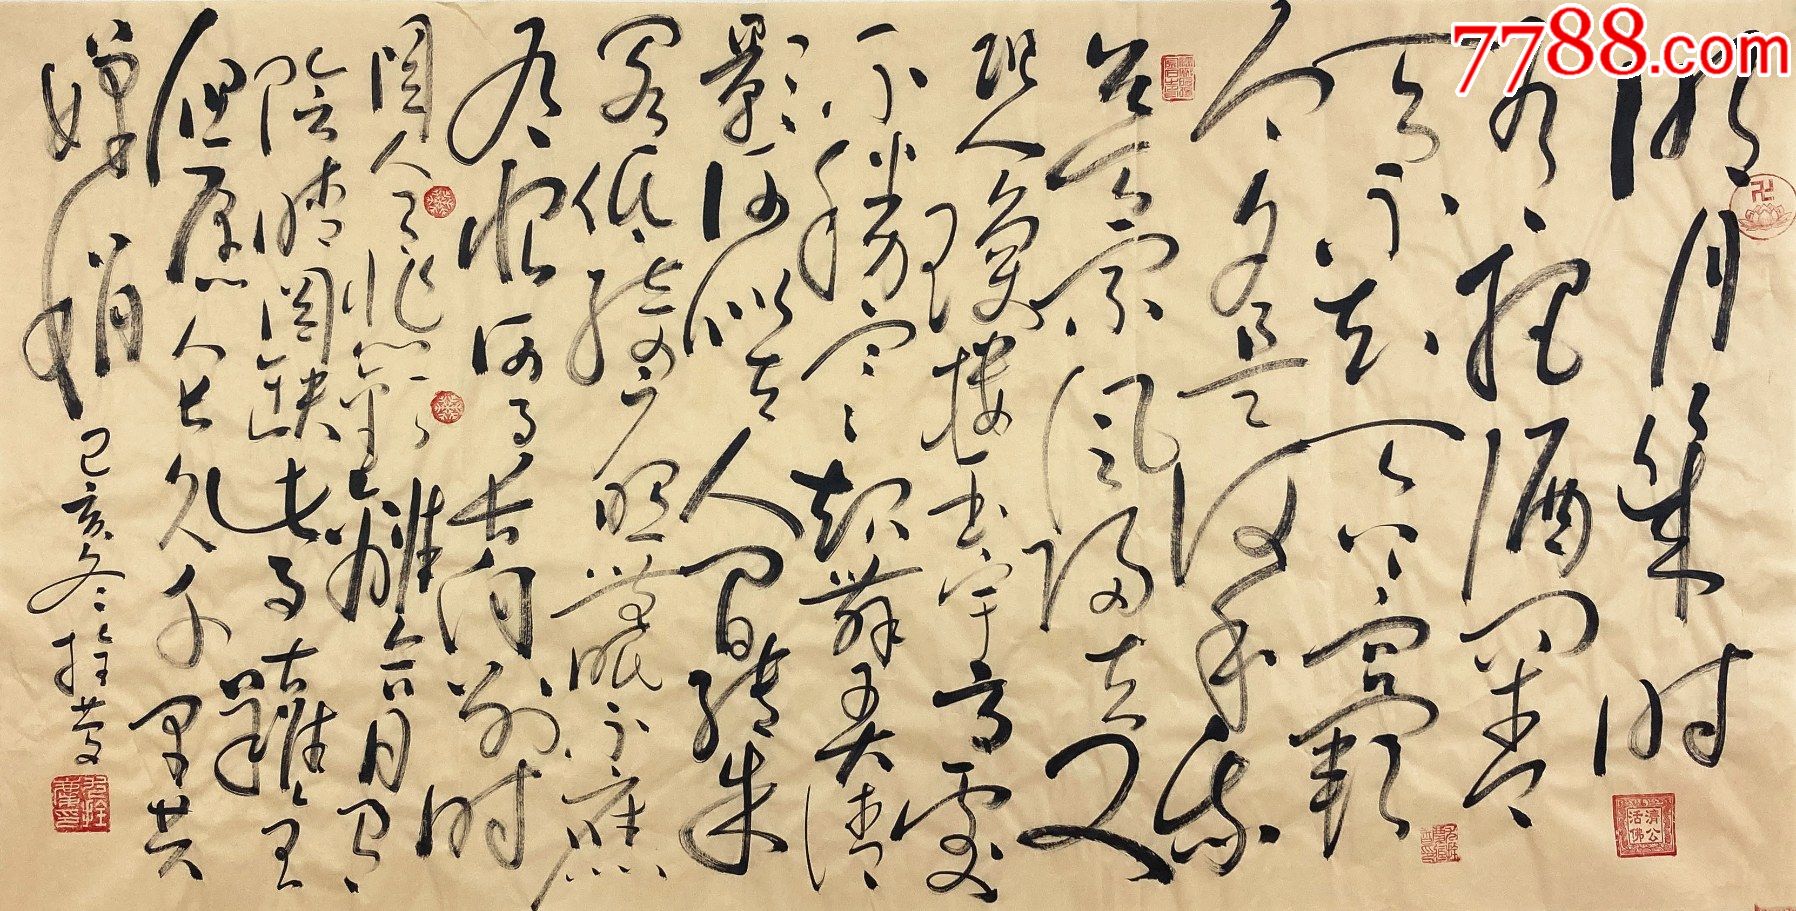 7788.com
明月幾时
有把酒问青
天不知天上宫闕
今夕是何年我
欲乘風归去又
恐瓊樓玉宇高處
不勝寒起舞弄清
影何似在人間转朱
閣低绮户照無眠不應
有恨何事长向别时
圆人有悲歡離合月有
陰晴圆缺此事古難全
但愿人长久千里共
嬋娟
己亥冬拴慶
濟公活佛